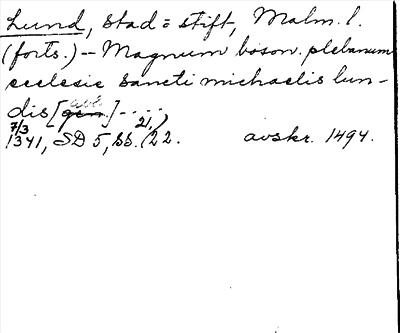 Lund, stad = stift, Malm. l.
(forts.) – Magnum boson. plebanum
ecclesie sancti michaelis lun-
dis [gem.] .....
7/3 1341, SD 5, ss. 21, (22. avskr. 1494.